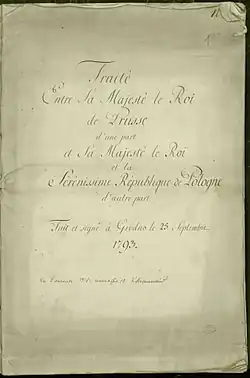 Traité
Entre Sa Majesté le Roi
de Prusse
d'une part
et Sa Majesté le Roi
et la
Sérénissime République de Pologne
d'autre part
Fait et signé à Grodno le 25. Septembre
1793.